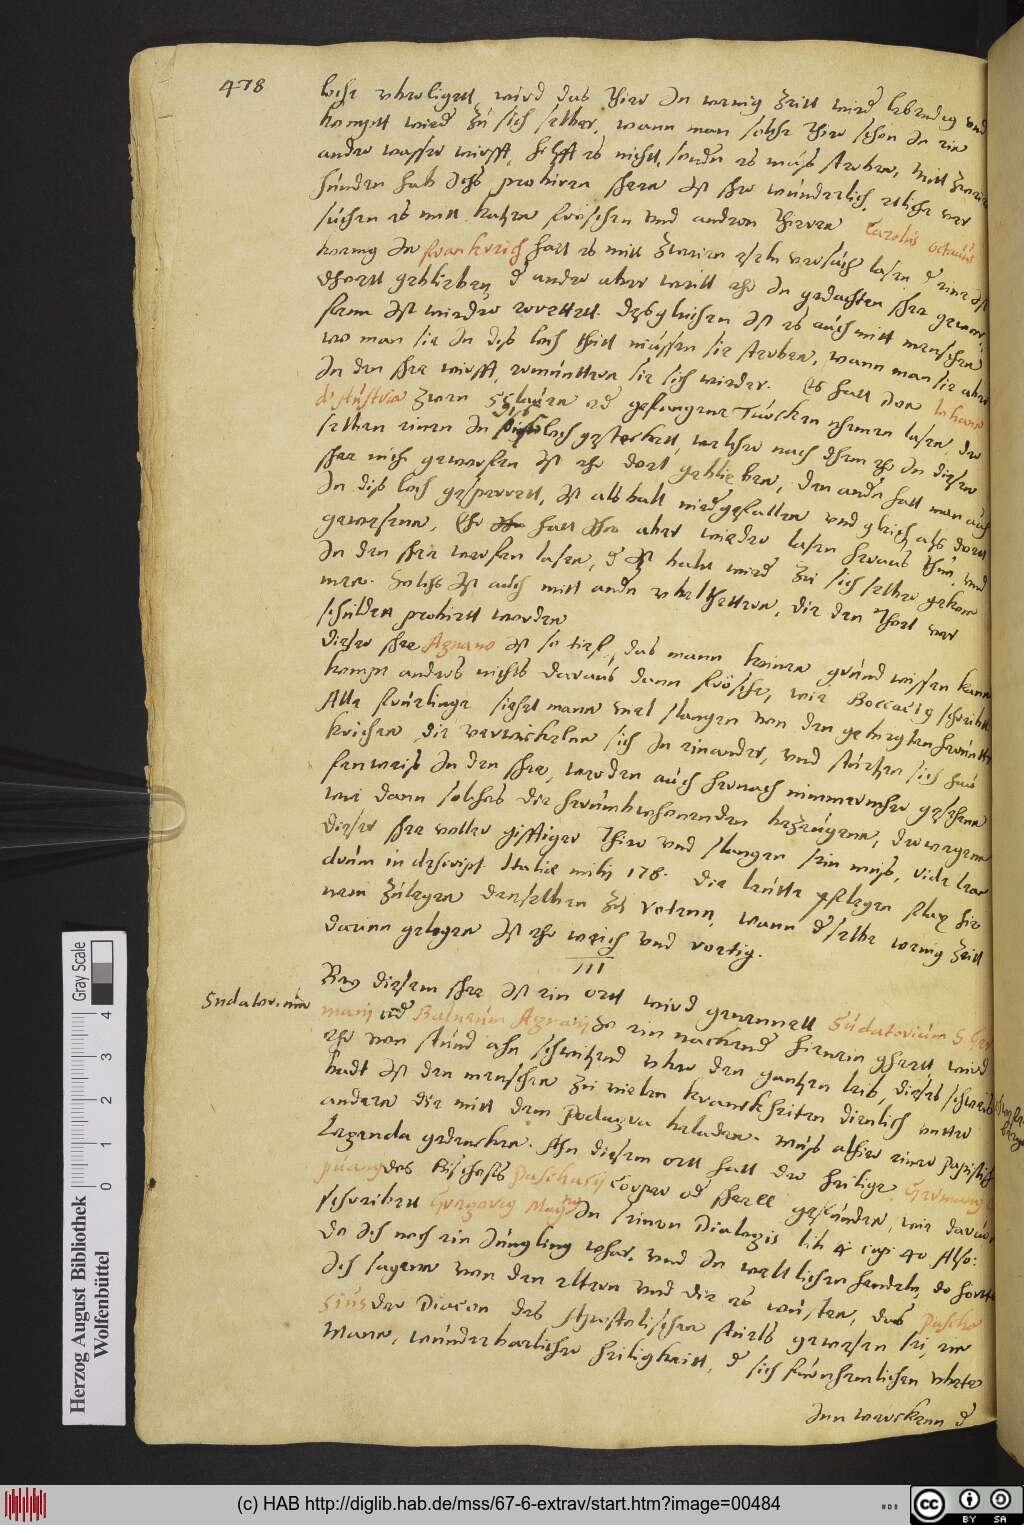 478
loche uberliget, wird das thier in wenig zeitt wird lebendig und
kompt wied zu sich selber, wann man solche thier schon in ein
ander wasser wirfft, hilfft es nicht, sonder es muß sterben, mitt zweien
hunden hab ichs probiren sehen ist sehr wunderlich, etliche ver
suchen es mitt katzen fröschen und andern thieren Carolus octauus
koenig in Franckreich hatt es mitt zweien eseln versuch lasen, d eine ist
thott gebliben, d ander aber weill ehr in gedachten sehe geworf
fenn ist wieder erettett. desgleichen ist es auch mitt menschen
wo man sie in dis loch thutt müssen sie sterben, wann man sie aber
in den sehe wirfft, ermüntern sie sich wieder. Es hatt don Iohann
d'Austria zwen Sclaven od gefangene Türcken nhemen lasen, der
selben einen in loch gestecket, welcher nach dhem ehr in diesen
sehe nich geworfen ist ehr dort geblieben, den andn hatt man auch
in dis loch gesperrett, ist alsbalt niedgefallen und gleich als dortt
gewesenn, Ehr hatt ihn aber wieder lasen heraus thun, und
in den sehe werfen lasen, d ist baltt wied zu sich selber gekom
men. Solchs ist auch mitt andn ubelthettern, die den thot ver
schulden probiertt worden
dieser sehe Agnano ist so tief, das mann keinen grund wissen kann
kompt anders nichts daraus dann frösche, wie Boccatig schreibt
Alle frulinge siehet mann viel slangen von den gebirgten herunter
krichen die verwickelnn sich in einander, und stürtzen sich hau
fenweis in den sehe, werden auch hernach nimmermher gesehenn
wie dann solches die herumbwhonenden bezeugenn, derwegenn
dieser sehe voller gifftiger thier und slangen sein mus, vide Lean
drum in descript Italiæ mihi 178. die leutte pflegen flax hie
nein zulegen denselben zu retenn, wann dselbe wenig zeitt
darinn gelegen ist ehr weich und rertig.
III
Sudatorium
Bey diesem sehe ist ein ortt wird genennett Sudatorium S Ger
manij ud Balneum Agnanij so ein nackend hienein gehett, wird
ehr von stund ahn schwitzend uber den gantzen leib, dieses schweis
badt ist den menschen zu vielen kranckheiten dienlich unter
andern die mitt dem Podagra beladen. mus alhier einer papistisch
Legenda gedencken. Ahn diesem ortt hatt der heilige Germanus Ca
puanus des Bischoffs Paschasij Cörper od sehell gefunden, wie davon
schreibett Gregorig Magnus in seinen Dialogis lib 4 cap. 40 Also:
Do ich noch ein Jüngling whar, und in weltlichen handeln, do hörte
ich sagenn von den eltern und die es wusten, das Pascha
sius der Diacon des Apostolischen stuels gewesen sei, ein
Mann, wunderbarlicher heiligkeitt, d sich furnhemlichen ubete
Inn wercken d
Gray Scale
4
3
2
1
0
Herzog August Bibliothek
Wolfenbüttel
(c) HAB http://diglib.hab.de/mss/67-6-extrav/start.htm?image=00484
HAB
cc
BY SA